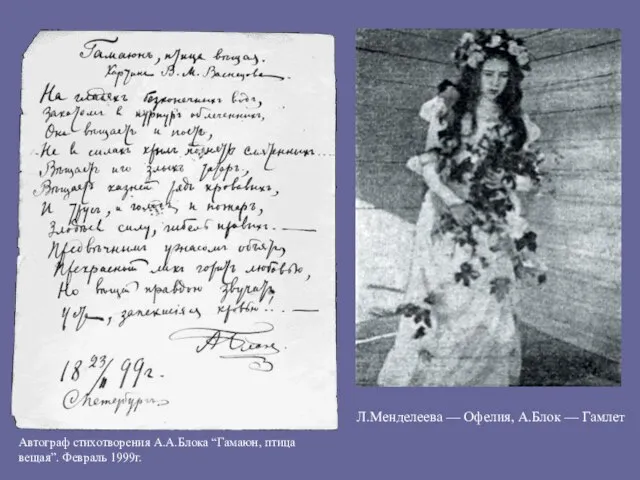 Гамаюнъ, птица вѣщая.
Картина В. М. Васнецова.
На гладяхъ безконечныхъ водъ,
Закатомъ в пурпуръ облеченныхъ,
Она вѣщаетъ и поетъ,
Не в силахъ крылъ поднять смятенныхъ...
Вѣщаетъ иго злыхъ татаръ,
Вѣщаетъ казней рядъ кровавыхъ,
И трусъ, и голодъ, и пожаръ,
Злодѣевъ силу, гибель правыхъ. —
Предвѣчнымъ ужасомъ объятъ,
Прекрасный ликъ горитъ любовью,
Но вѣщей правдою звучатъ
Уста, запекшіяся кровью... —
А Блокъ.
18 23/II 99 г.
С.Петербургъ.
Автограф стихотворения А.А.Блока “Гамаюн, птица
вещая”. Февраль 1999г.
Л.Менделеева — Офелия, А.Блок — Гамлет